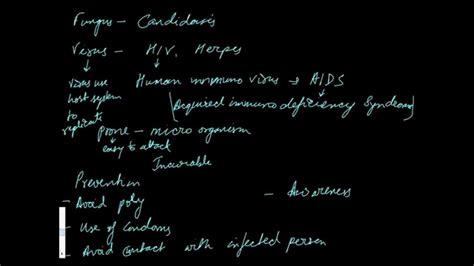 Fungus - Candidasis
Virus - HIV, Herpes
virus use Human immuno virus → AIDS
host system (Acquired immuno deficiency Syndrom)
to
replicate Prone - micro organism
easy to attack
Incurable
Prevention
- Avoid poly - Awareness
- Use of Condoms
- Avoid contact with infected person